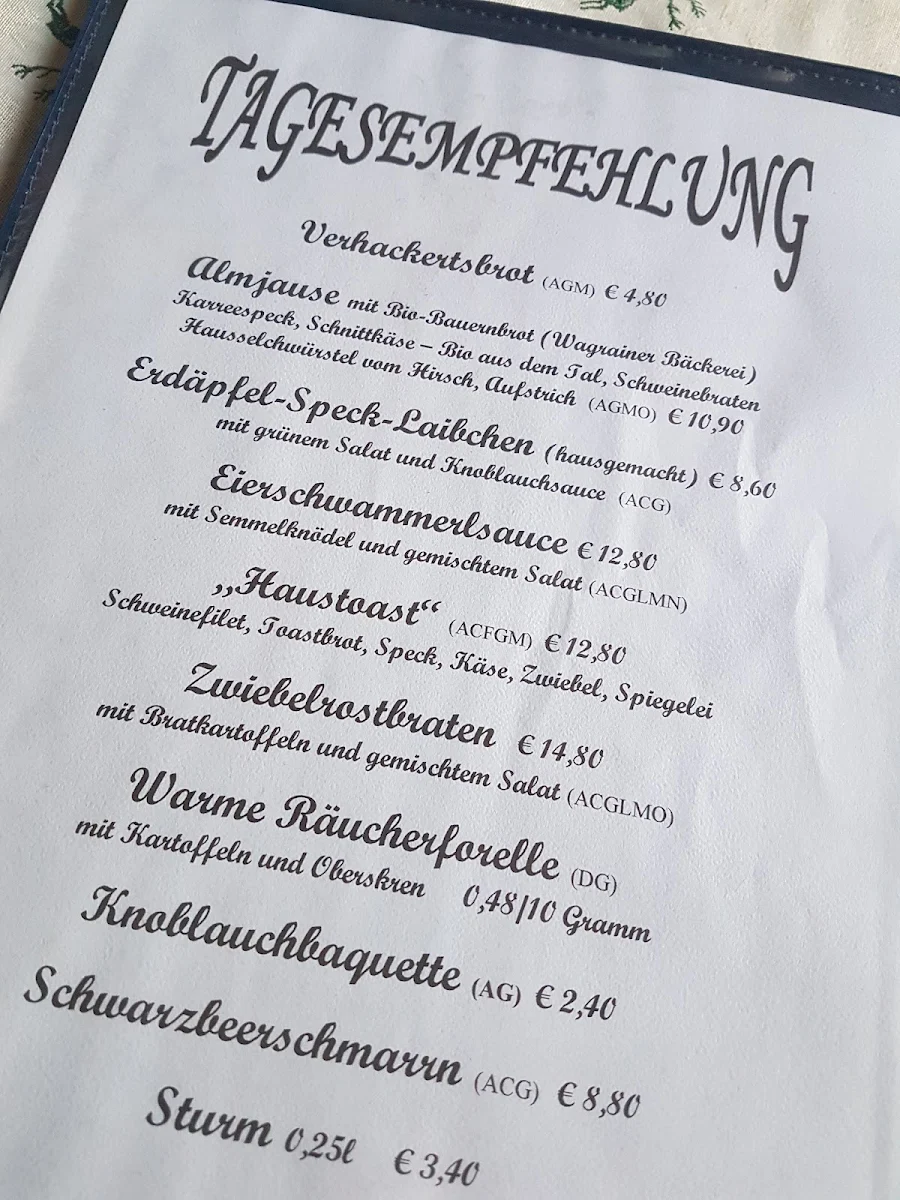 TAGESEMPFEHLUNG
Verhackertsbrot (AGM) € 4,80
Almjause mit Bio-Bauernbrot (Wagrainer Bäckerei)
Karreespeck, Schnittkäse – Bio aus dem Tal, Schweinebraten
Hausselchwürstel vom Hirsch, Aufstrich (AGMO) € 10,90
Erdäpfel-Speck-Laibchen (hausgemacht) € 8,60
mit grünem Salat und Knoblauchsauce (ACG)
Eierschwammerlsauce € 12,80
mit Semmelknödel und gemischtem Salat (ACGLMN)
„Haustoast“ (ACFGM) € 12,80
Schweinefilet, Toastbrot, Speck, Käse, Zwiebel, Spiegelei
Zwiebelrostbraten € 14,80
mit Bratkartoffeln und gemischtem Salat (ACGLMO)
Warme Räucherforelle (DG)
mit Kartoffeln und Oberskren 0,48/10 Gramm
Knoblauchbaquette (AG) € 2,40
Schwarzbeerschmarrn (ACG) € 8,80
Sturm 0,25l € 3,40